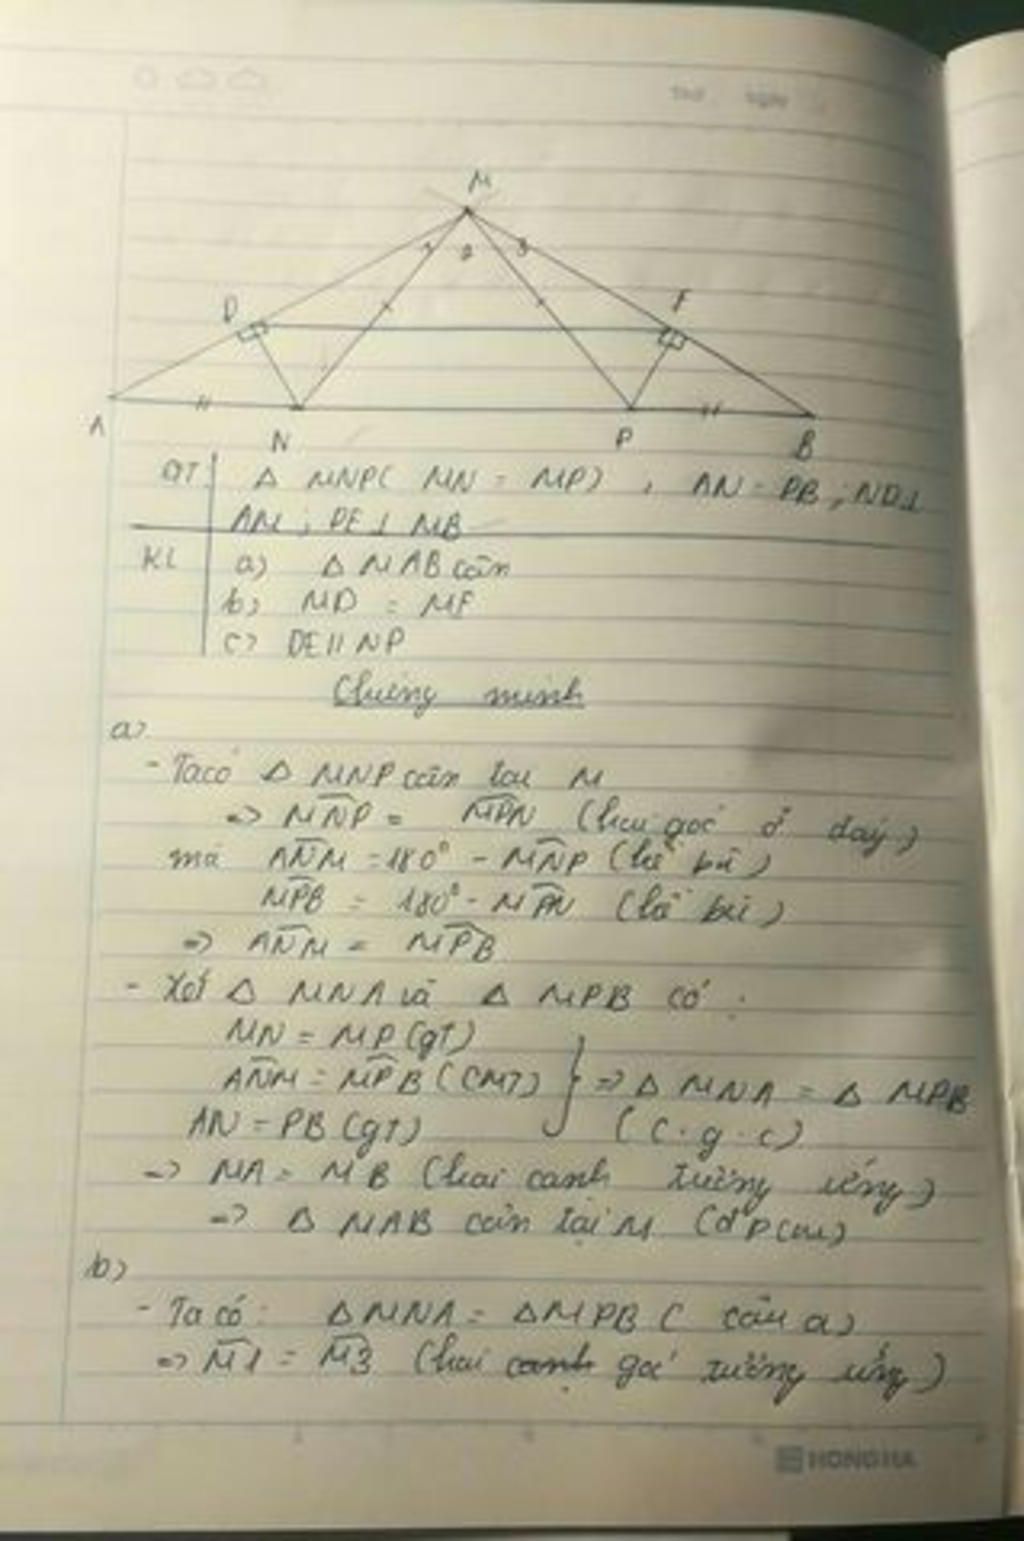 Thứ Ngày
M
1 2 3
D F
A N P B
GT Δ MNP( MN = MP) , AN = PB ; ND⊥
AM ; PE⊥ MB
KL a) Δ MAB cân
b) MD = ME
c) DE // NP
Chứng minh
a)
- Ta có Δ MNP cân tại M
=> MNP = MPN (hai góc ở đáy)
mà ANM = 180° - MNP (kề bù)
MPB = 180° - MPN (kề bù)
=> ANM = MPB
- Xét Δ MNA và Δ MPB có :
MN = MP (gt)
ANM = MPB (CMT) } => Δ MNA = Δ MPB
AN = PB (gt) (c.g.c)
=> MA = MB (hai cạnh tương ứng)
=> Δ MAB cân tại M (đpcm)
b)
- Ta có : ΔMNA = ΔMPB ( câu a)
=> M1 = M3 (hai cạnh góc tương ứng)
HONG HA